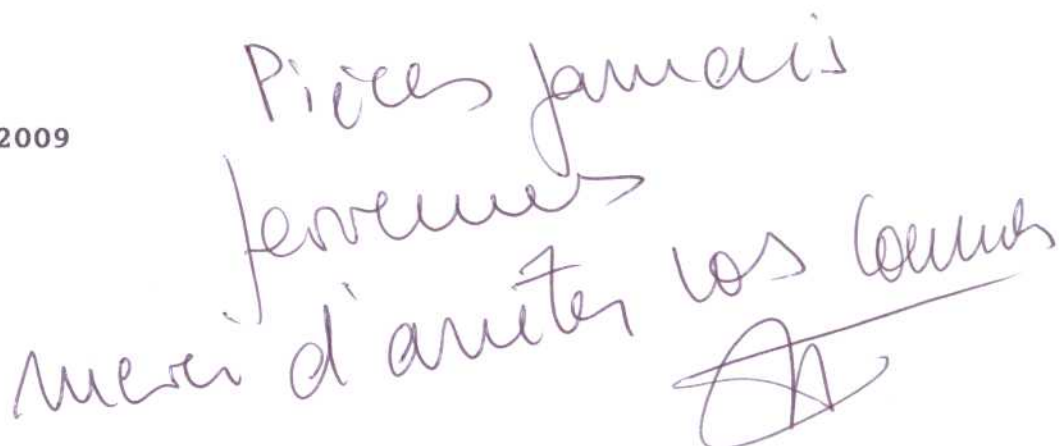 2009
Pièces jamais
parvenues
merci d'arrêter vos